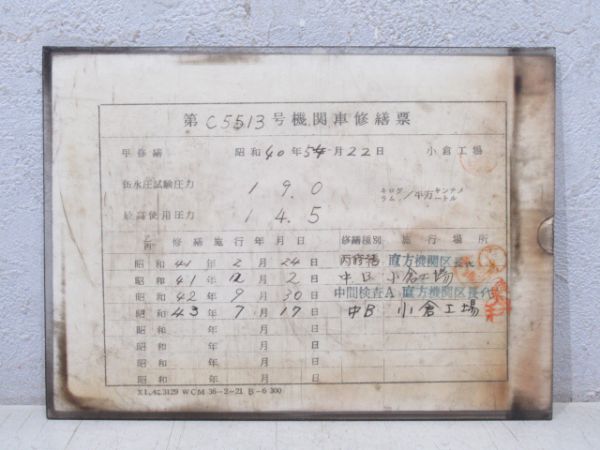 第 C5513 号機関車修繕票
甲修繕 昭和40年5月22日 小倉工場
缶水圧試験圧力 19.0 キログラム/平方センチメートル
最高使用圧力 14.5
修繕施行年月日 修繕種別 施行場所
昭和41年2月24日 丙修繕 直方機関区長代
昭和41年12月2日 中B 小倉工場
昭和42年9月30日 中間検査A 直方機関区長代
昭和43年7月17日 中B 小倉工場
昭和 年 月 日
昭和 年 月 日
昭和 年 月 日
昭和 年 月 日
3129 WCM 36-2-21 B-6 300